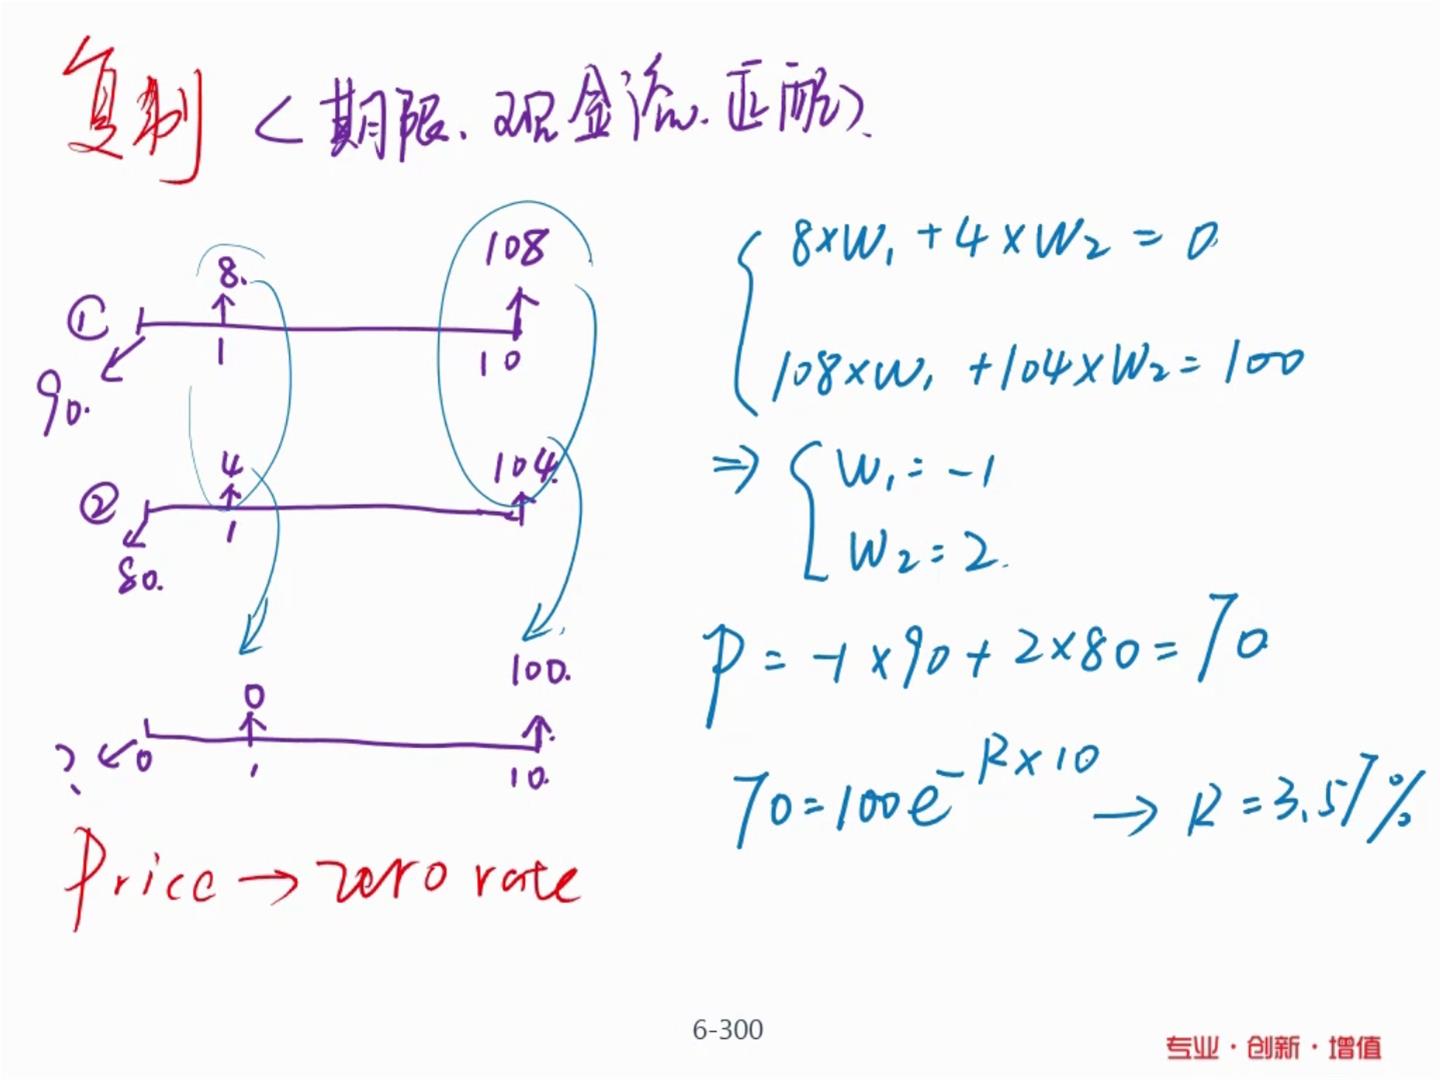 复制 <期限、现金流、匹配>.
① 8. 108
1 10
90.
② 4 104.
1
80.
0 100.
? 0 1 10.
Price → zero rate
8×W₁ + 4×W₂ = 0
108×W₁ + 104×W₂ = 100
⇒ W₁ = -1
W₂ = 2.
P = -1×90 + 2×80 = 70
70 = 100e^{-R×10} → R = 3.57%
6-300
专业·创新·增值